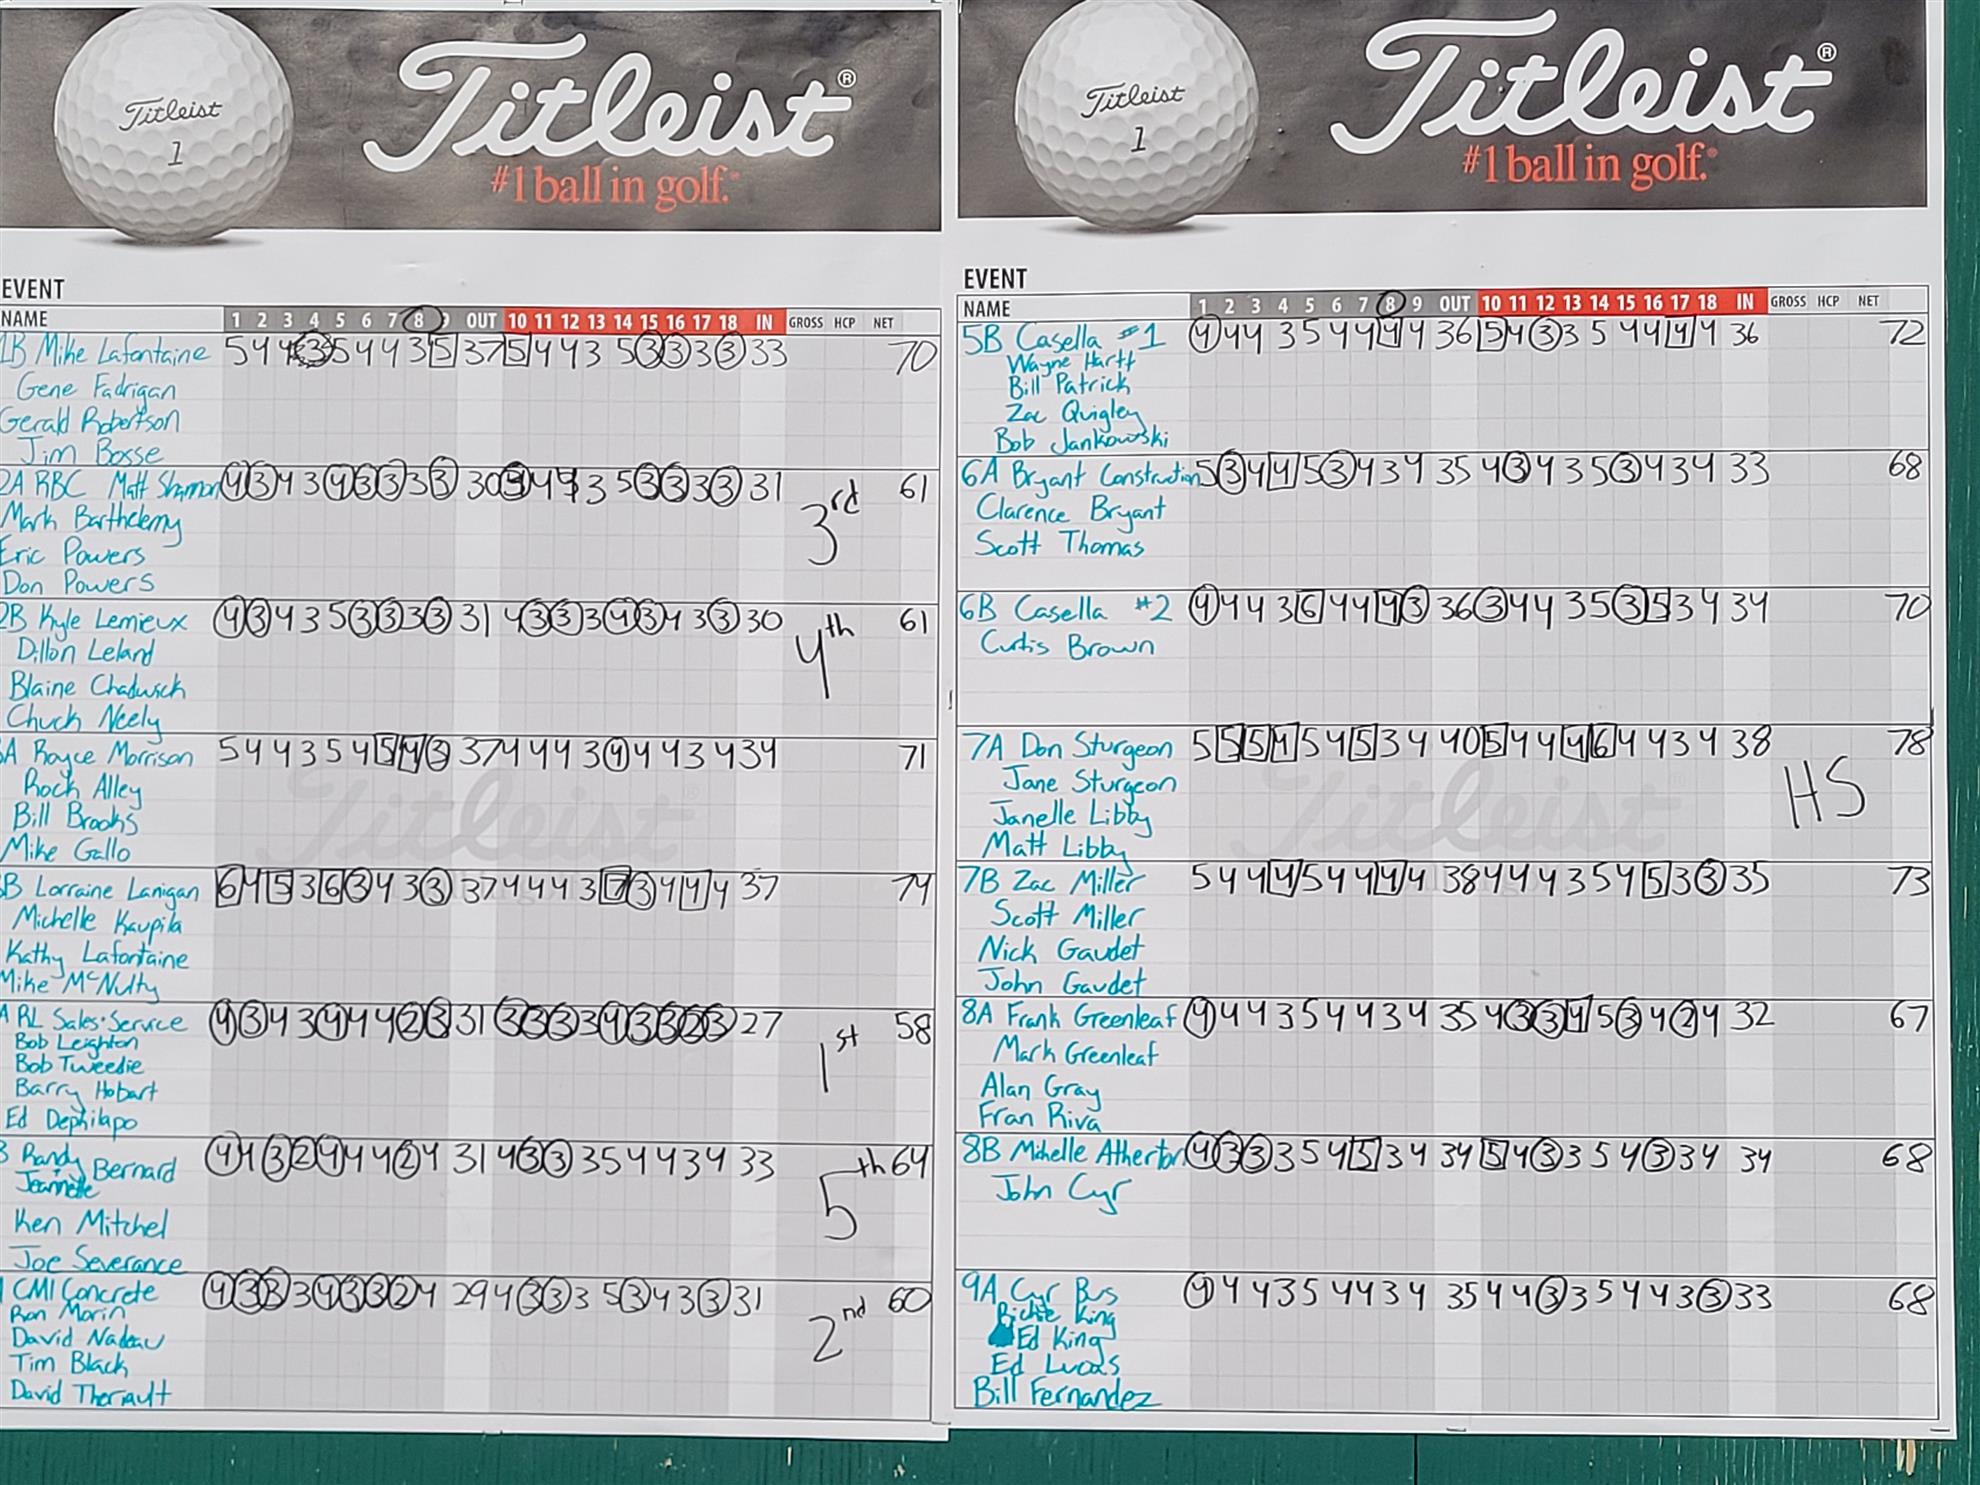 Titleist
1
Titleist®
#1 ball in golf.
EVENT
NAME 1 2 3 4 5 6 7 8 9 OUT 10 11 12 13 14 15 16 17 18 IN GROSS HCP NET
1B Mike Lafontaine 5 4 4 3 5 4 4 3 5 37 5 4 4 3 5 3 3 3 3 33 70
Gene Fadrigan
Gerald Robertson
Jim Bosse
2A RBC Matt Shannon 4 3 4 3 4 3 3 3 3 30 3 4 4 3 5 3 3 3 3 31 61
3rd
Mark Barthelemy
Eric Powers
Don Powers
2B Kyle Lemieux 4 3 4 3 5 3 3 3 3 31 4 3 3 3 4 3 4 3 3 30 61
4th
Dillon Leland
Blaine Chadwick
Chuck Neely
A Royce Morrison 5 4 4 3 5 4 5 4 3 37 4 4 4 3 4 4 4 3 4 34 71
Rock Alley
Bill Brooks
Mike Gallo
B Lorraine Lanigan 6 4 5 3 6 3 4 3 3 37 4 4 4 3 7 3 4 4 4 37 74
Michelle Kaupila
Kathy Lafontaine
Mike McNulty
A RL Sales·Service 4 3 4 3 4 4 4 2 3 31 3 3 3 3 4 3 3 2 3 27 58
1st
Bob Leighton
Bob Tweedie
Barry Hobart
Ed Dephilapo
B Randy Bernard 4 4 3 2 4 4 4 2 4 31 4 3 3 3 5 4 4 3 4 33 64
5th
Jeannette
Ken Mitchel
Joe Severance
CMI Concrete 4 3 3 3 4 3 3 2 4 29 4 3 3 3 5 3 4 3 3 31 60
2nd
Ron Morin
David Nadeau
Tim Black
David Theriault
Titleist
1
Titleist®
#1 ball in golf.
EVENT
NAME 1 2 3 4 5 6 7 8 9 OUT 10 11 12 13 14 15 16 17 18 IN GROSS HCP NET
5B Casella #1 4 4 4 3 5 4 4 4 4 36 5 4 3 3 5 4 4 4 4 36 72
Wayne Hartt
Bill Patrick
Zac Quigley
Bob Jankowski
6A Bryant Construction 5 3 4 4 5 3 4 3 4 35 4 3 4 3 5 3 4 3 4 33 68
Clarence Bryant
Scott Thomas
6B Casella #2 4 4 4 3 6 4 4 4 3 36 3 4 4 3 5 3 5 3 4 34 70
Curtis Brown
7A Don Sturgeon 5 5 5 4 5 4 5 3 4 40 5 4 4 4 6 4 4 3 4 38 78
HS
Jane Sturgeon
Janelle Libby
Matt Libby
7B Zac Miller 5 4 4 4 5 4 4 4 4 38 4 4 4 3 5 4 5 3 3 35 73
Scott Miller
Nick Gaudet
John Gaudet
8A Frank Greenleaf 4 4 4 3 5 4 4 3 4 35 4 3 3 4 5 3 4 2 4 32 67
Mark Greenleaf
Alan Gray
Fran Riva
8B Mihelle Atherton 4 3 3 3 5 4 5 3 4 34 5 4 3 3 5 4 3 3 4 34 68
John Cyr
9A Cyr Bus 4 4 4 3 5 4 4 3 4 35 4 4 3 3 5 4 4 3 3 33 68
Richie King
Ed King
Ed Lucas
Bill Fernandez